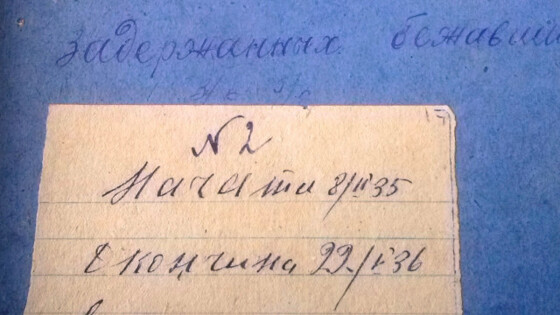 задержанных бежавши
№ 2
Начата 8/II 35
Окончина 22/II 36